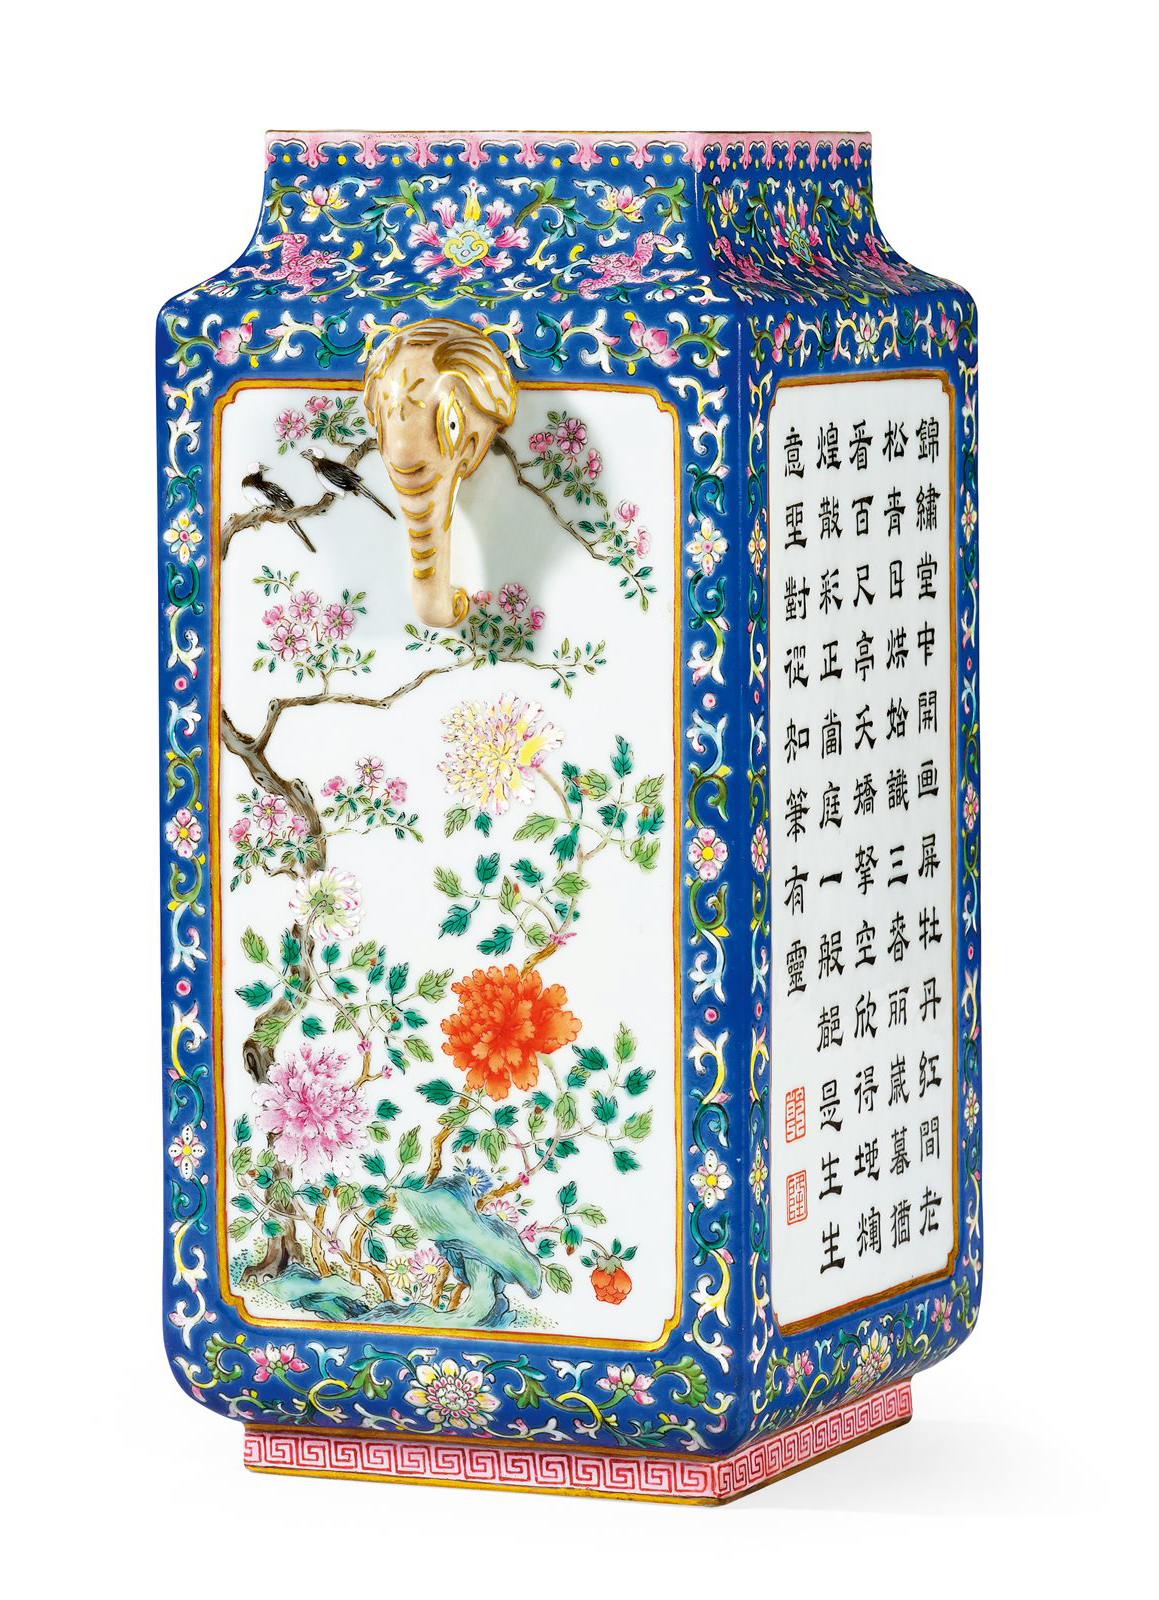 錦繡堂中開画屏牡丹红間老
松青日烘始識三春丽嵗暮猶
看百尺亭夭矯拏空欣得地煇
煌散彩正當庭一般都是生生
意坐對從知筆有靈
乾
隆